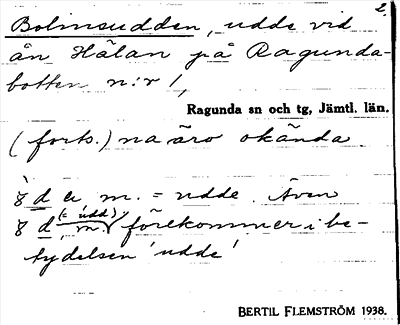 2.
Bolinsudden, udde vid
ån Hälan på Ragunda-
botten n:r 1,
Ragunda sn och tg, Jämtl. län.
(forts.) na äro okända
d er m. = udde. Även
d (= udd), m. förekommer i be-
tydelsen 'udde'
BERTIL FLEMSTRÖM 1938.